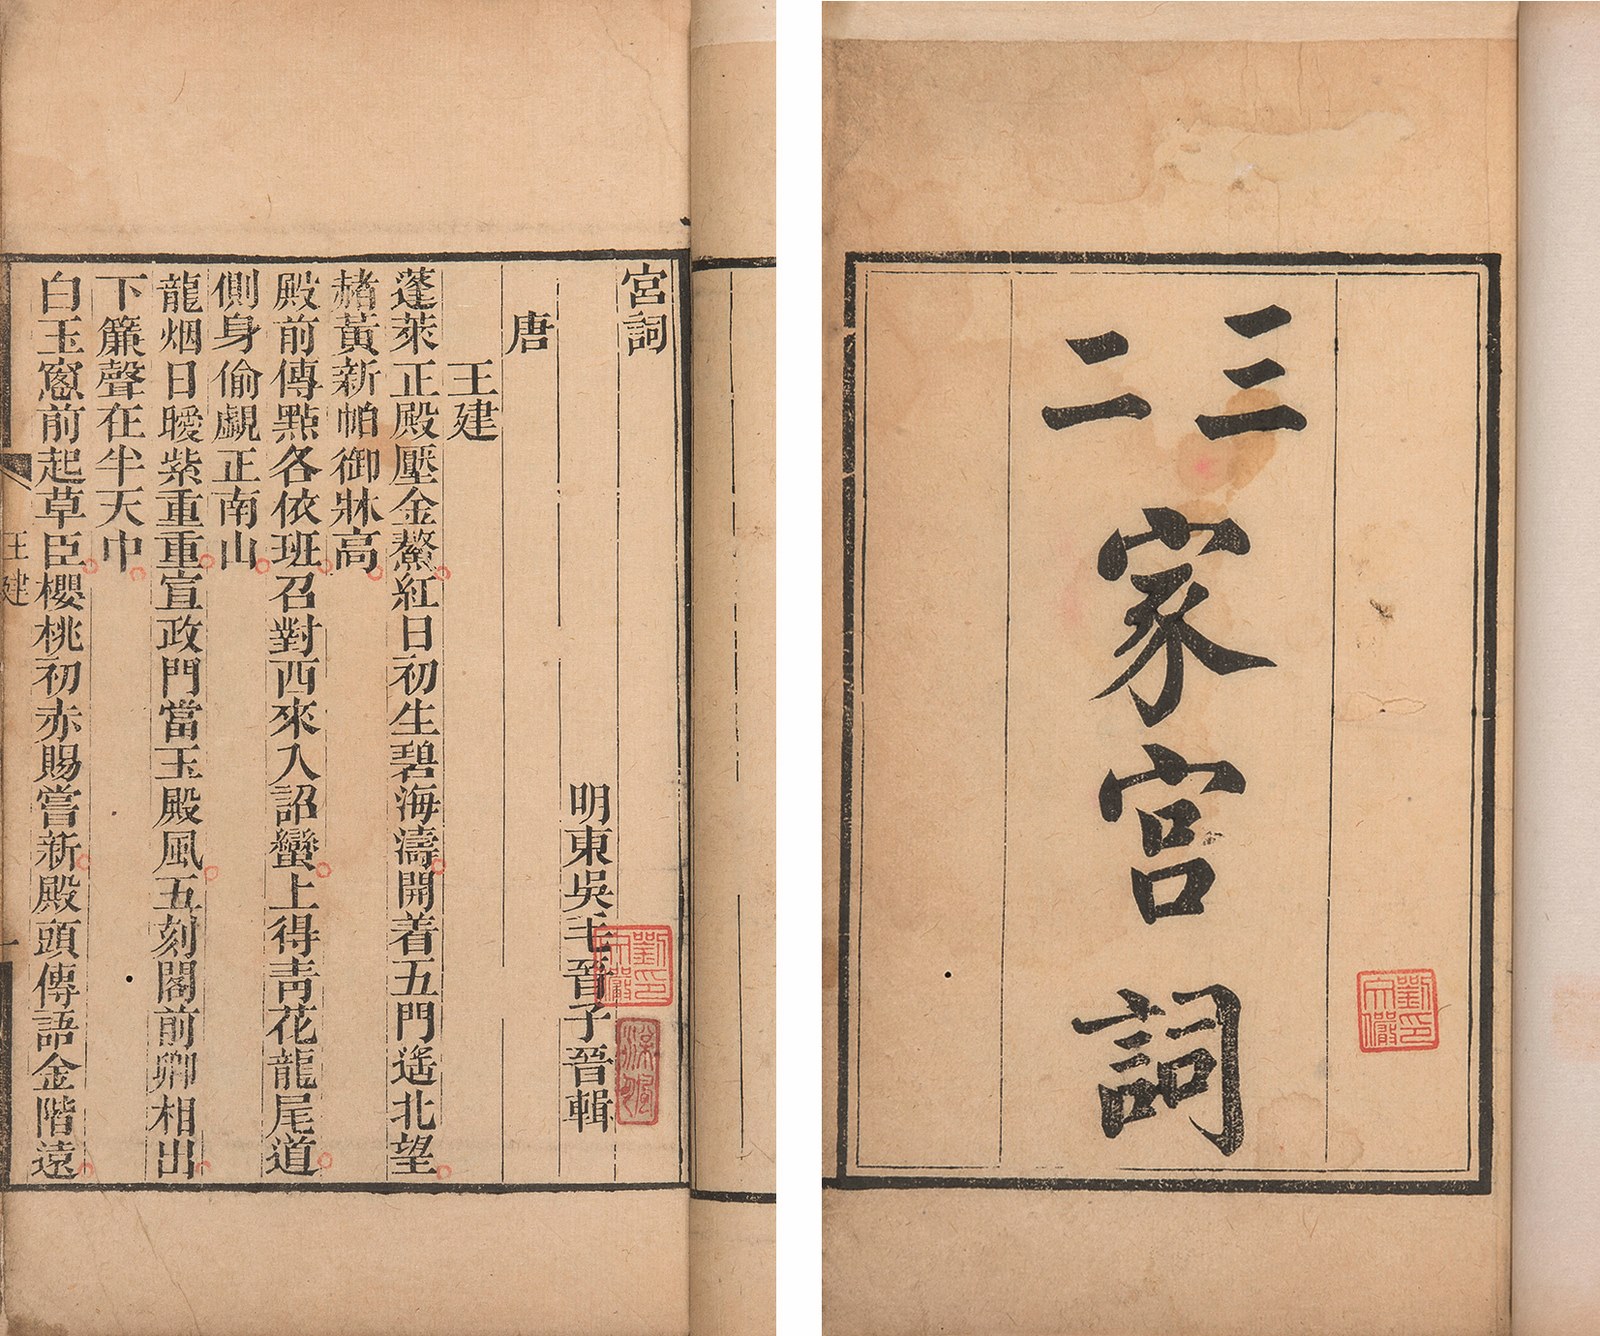 三二
家宮詞
宮詞
明東吳毛晉子晉輯
唐
王建
蓬萊正殿壓金鰲紅日初生碧海濤開着五門遙北望
赭黃新帕御牀高
殿前傳點各依班召對西來入詔蠻上得青花龍尾道
側身偷覷正南山
龍烟日曖紫重重宣政門當玉殿風五刻閣前卿相出
下簾聲在半天中
白玉窻前起草臣櫻桃初赤賜嘗新殿頭傳語金階遠
王建
一